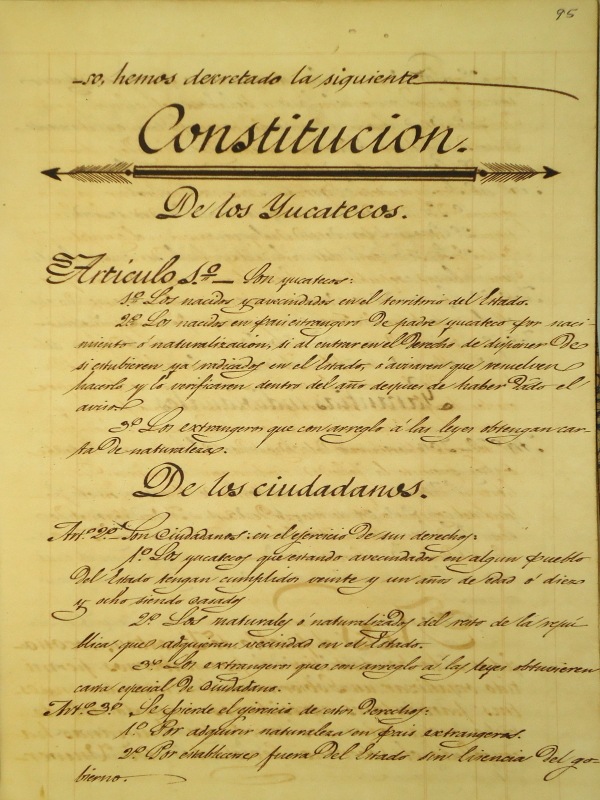 95
-so, hemos decretado la siguiente
Constitucion.
De los Yucatecos.
Articulo 1.º — Son yucatecos:
1º Los nacidos y avecindados en el territorio del Estado.
2º Los nacidos en pais estrangero de padre yucateco por naci-
miento ó naturalizacion, si al entrar en el derecho de disponer de
si estubieren ya radicados en el Estado, ó avisaren que resuelven
hacerlo y lo verificaren dentro del año despues de haber dado el
aviso.
3º Los extrangeros que con arreglo á las leyes obtengan car-
ta de naturaleza.
De los ciudadanos.
Art.º 2º Son Ciudadanos: en el ejercicio de sus derechos:
1º Los yucatecos que estando avecindados en algun pueblo
del Estado tengan cumplidos veinte y un años de edad ó diez
y ocho siendo casados
2º Los naturales ó naturalizados del resto de la repú-
blica que adquieran vecindad en el Estado.
3º Los extrangeros que con arreglo á las leyes obtuvieren
carta especial de Ciudadano.
Art.º 3º Se pierde el ejercicio de estos derechos:
1º Por adquirir naturaleza en pais extrangero.
2º Por establecerse fuera del Estado sin licencia del go-
bierno.